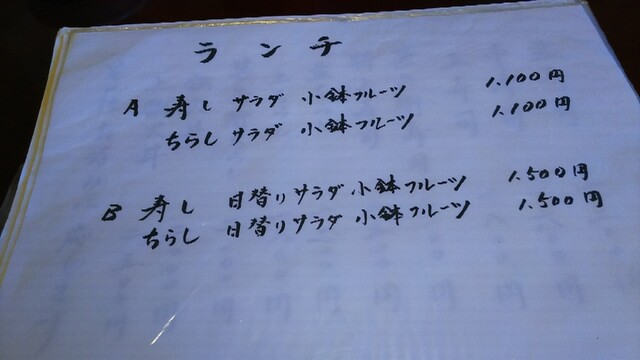 ランチ
A 寿し サラダ 小鉢フルーツ 1.100円
ちらし サラダ 小鉢フルーツ 1.100円
B 寿し 日替りサラダ 小鉢フルーツ 1.500円
ちらし 日替りサラダ 小鉢フルーツ 1.500円